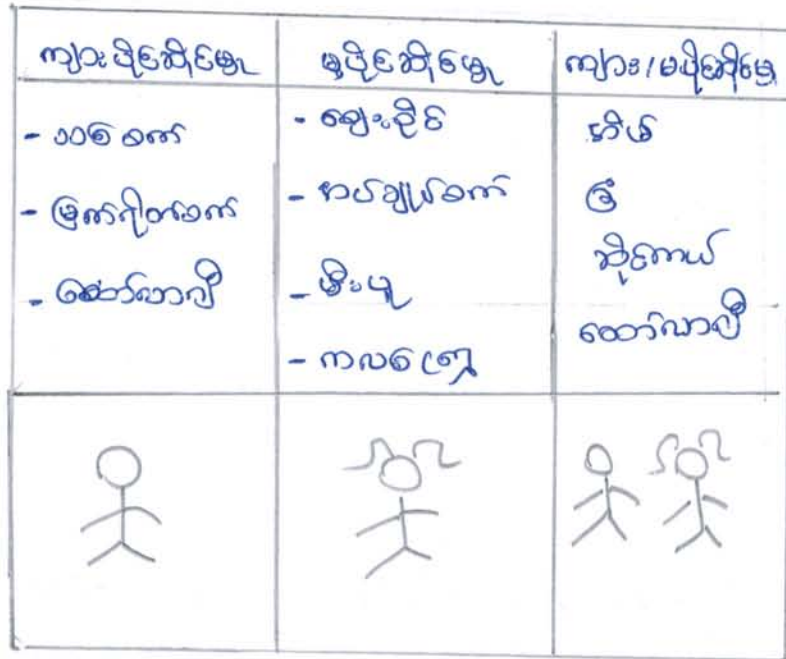 ကျားပိုင်ဆိုင်မှု
မပိုင်ဆိုင်မှု
ကျား/မပိုင်ဆိုင်မှု
- သစ်စက်
- မြက်ရိတ်စက်
- ထော်လာဂျီ
- ဈေးဆိုင်
- စပ်ချုပ်စက်
- မီးပူ
အိမ်
ခြံ
ဆိုင်ကယ်
ထော်လာဂျီ